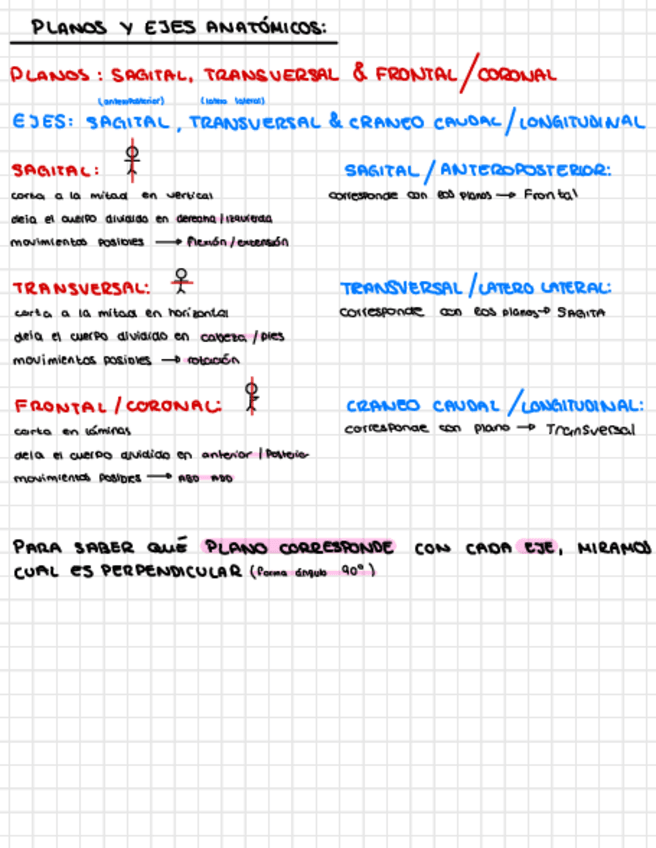 PLANOS Y EJES ANATÓMICOS:
PLANOS: SAGITAL, TRANSVERSAL & FRONTAL/CORONAL
(anteroposterior) (latero lateral)
EJES: SAGITAL, TRANSVERSAL & CRANEO CAUDAL/LONGITUDINAL
SAGITAL:
corta a la mitad en vertical
deja el cuerpo dividido en derecha/izquierda
movimientos posibles → flexión/extensión
SAGITAL/ANTEROPOSTERIOR:
corresponde con los planos → Frontal
TRANSVERSAL:
corta a la mitad en horizontal
deja el cuerpo dividido en cabeza/pies
movimientos posibles → rotación
TRANSVERSAL/LATERO LATERAL:
corresponde con los planos → SAGITA
FRONTAL/CORONAL:
corta en láminas
deja el cuerpo dividido en anterior/Posterior
movimientos posibles → ABD ADD
CRANEO CAUDAL/LONGITUDINAL:
corresponde con plano → Transversal
PARA SABER QUÉ PLANO CORRESPONDE CON CADA EJE, MIRAMOS
CUAL ES PERPENDICULAR (forma ángulo 90°)